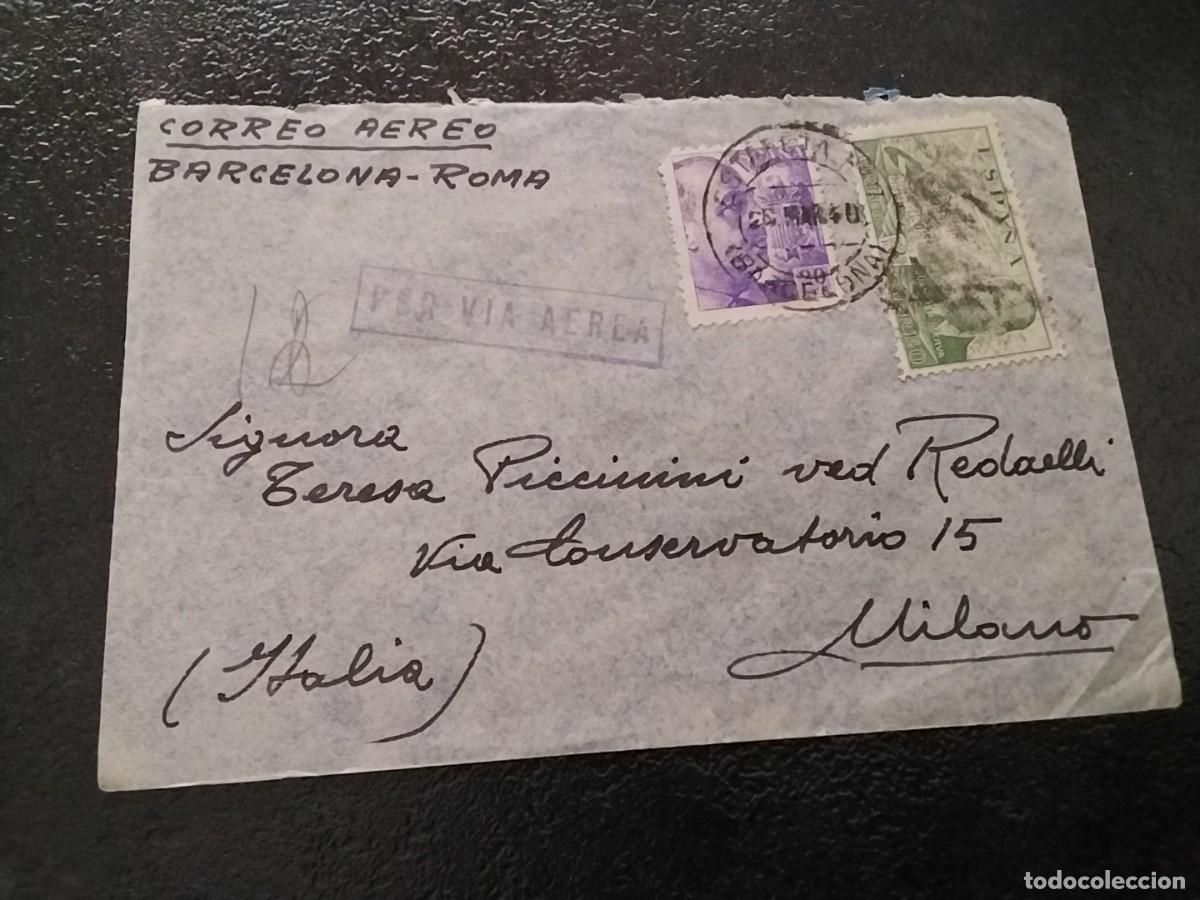 CORREO AEREO
BARCELONA-ROMA
POR VIA AEREA
26 MAR 40
(BARCELONA)
ESPAÑA
Signora
Teresa Piccinini ved Redaelli
Via Conservatorio 15
Milano
(Italia)
todocoleccion